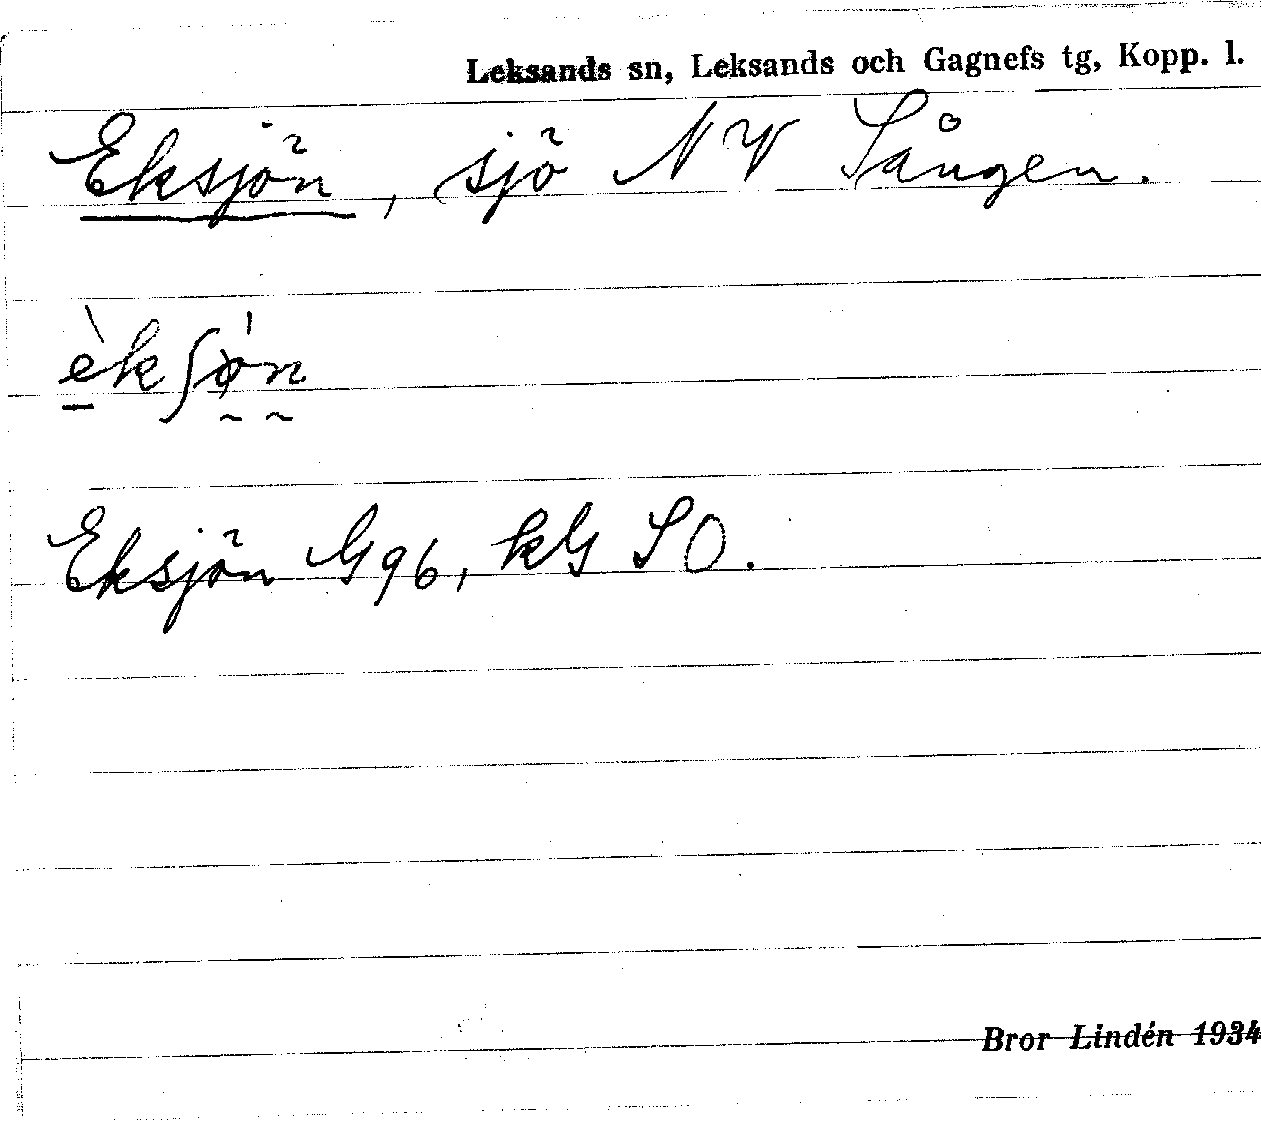 Leksands sn, Leksands och Gagnefs tg, Kopp. l.
Eksjön, sjö NV Sången.
èkʃøn
Eksjön G96, kG SO.
Bror Lindén 1934